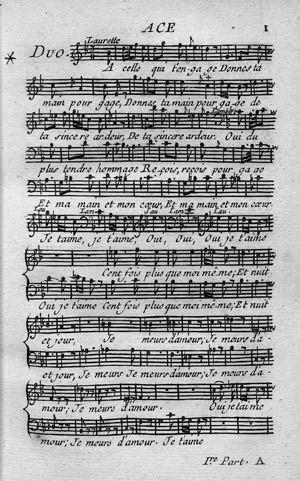 ACE 1
Laurette
* DUO.
A celle qui t'engage Donnes ta
main pour gage, Donnes ta main pour gage de
ta sincere ardeur, De ta sincere ardeur. Oui du
plus tendre hommage Reçois, reçois pour gage
Et ma main et mon cœur, Et ma main et mon cœur
Lau. Lau.
Je t'aime, je t'aime, Oui, Oui, Oui je t'aime
Cent fois plus que moi même; Et nuit
Oui je t'aime Cent fois plus que moi même; Et nuit
et jour, Je meurs d'amour; Je meurs d'a-
et jour, Je meurs d'amour; Je meurs d'a-
mour; Je meurs d'amour. Oui je t'aime
mour; Je meurs d'amour. Je t'aime
I.re Part. A